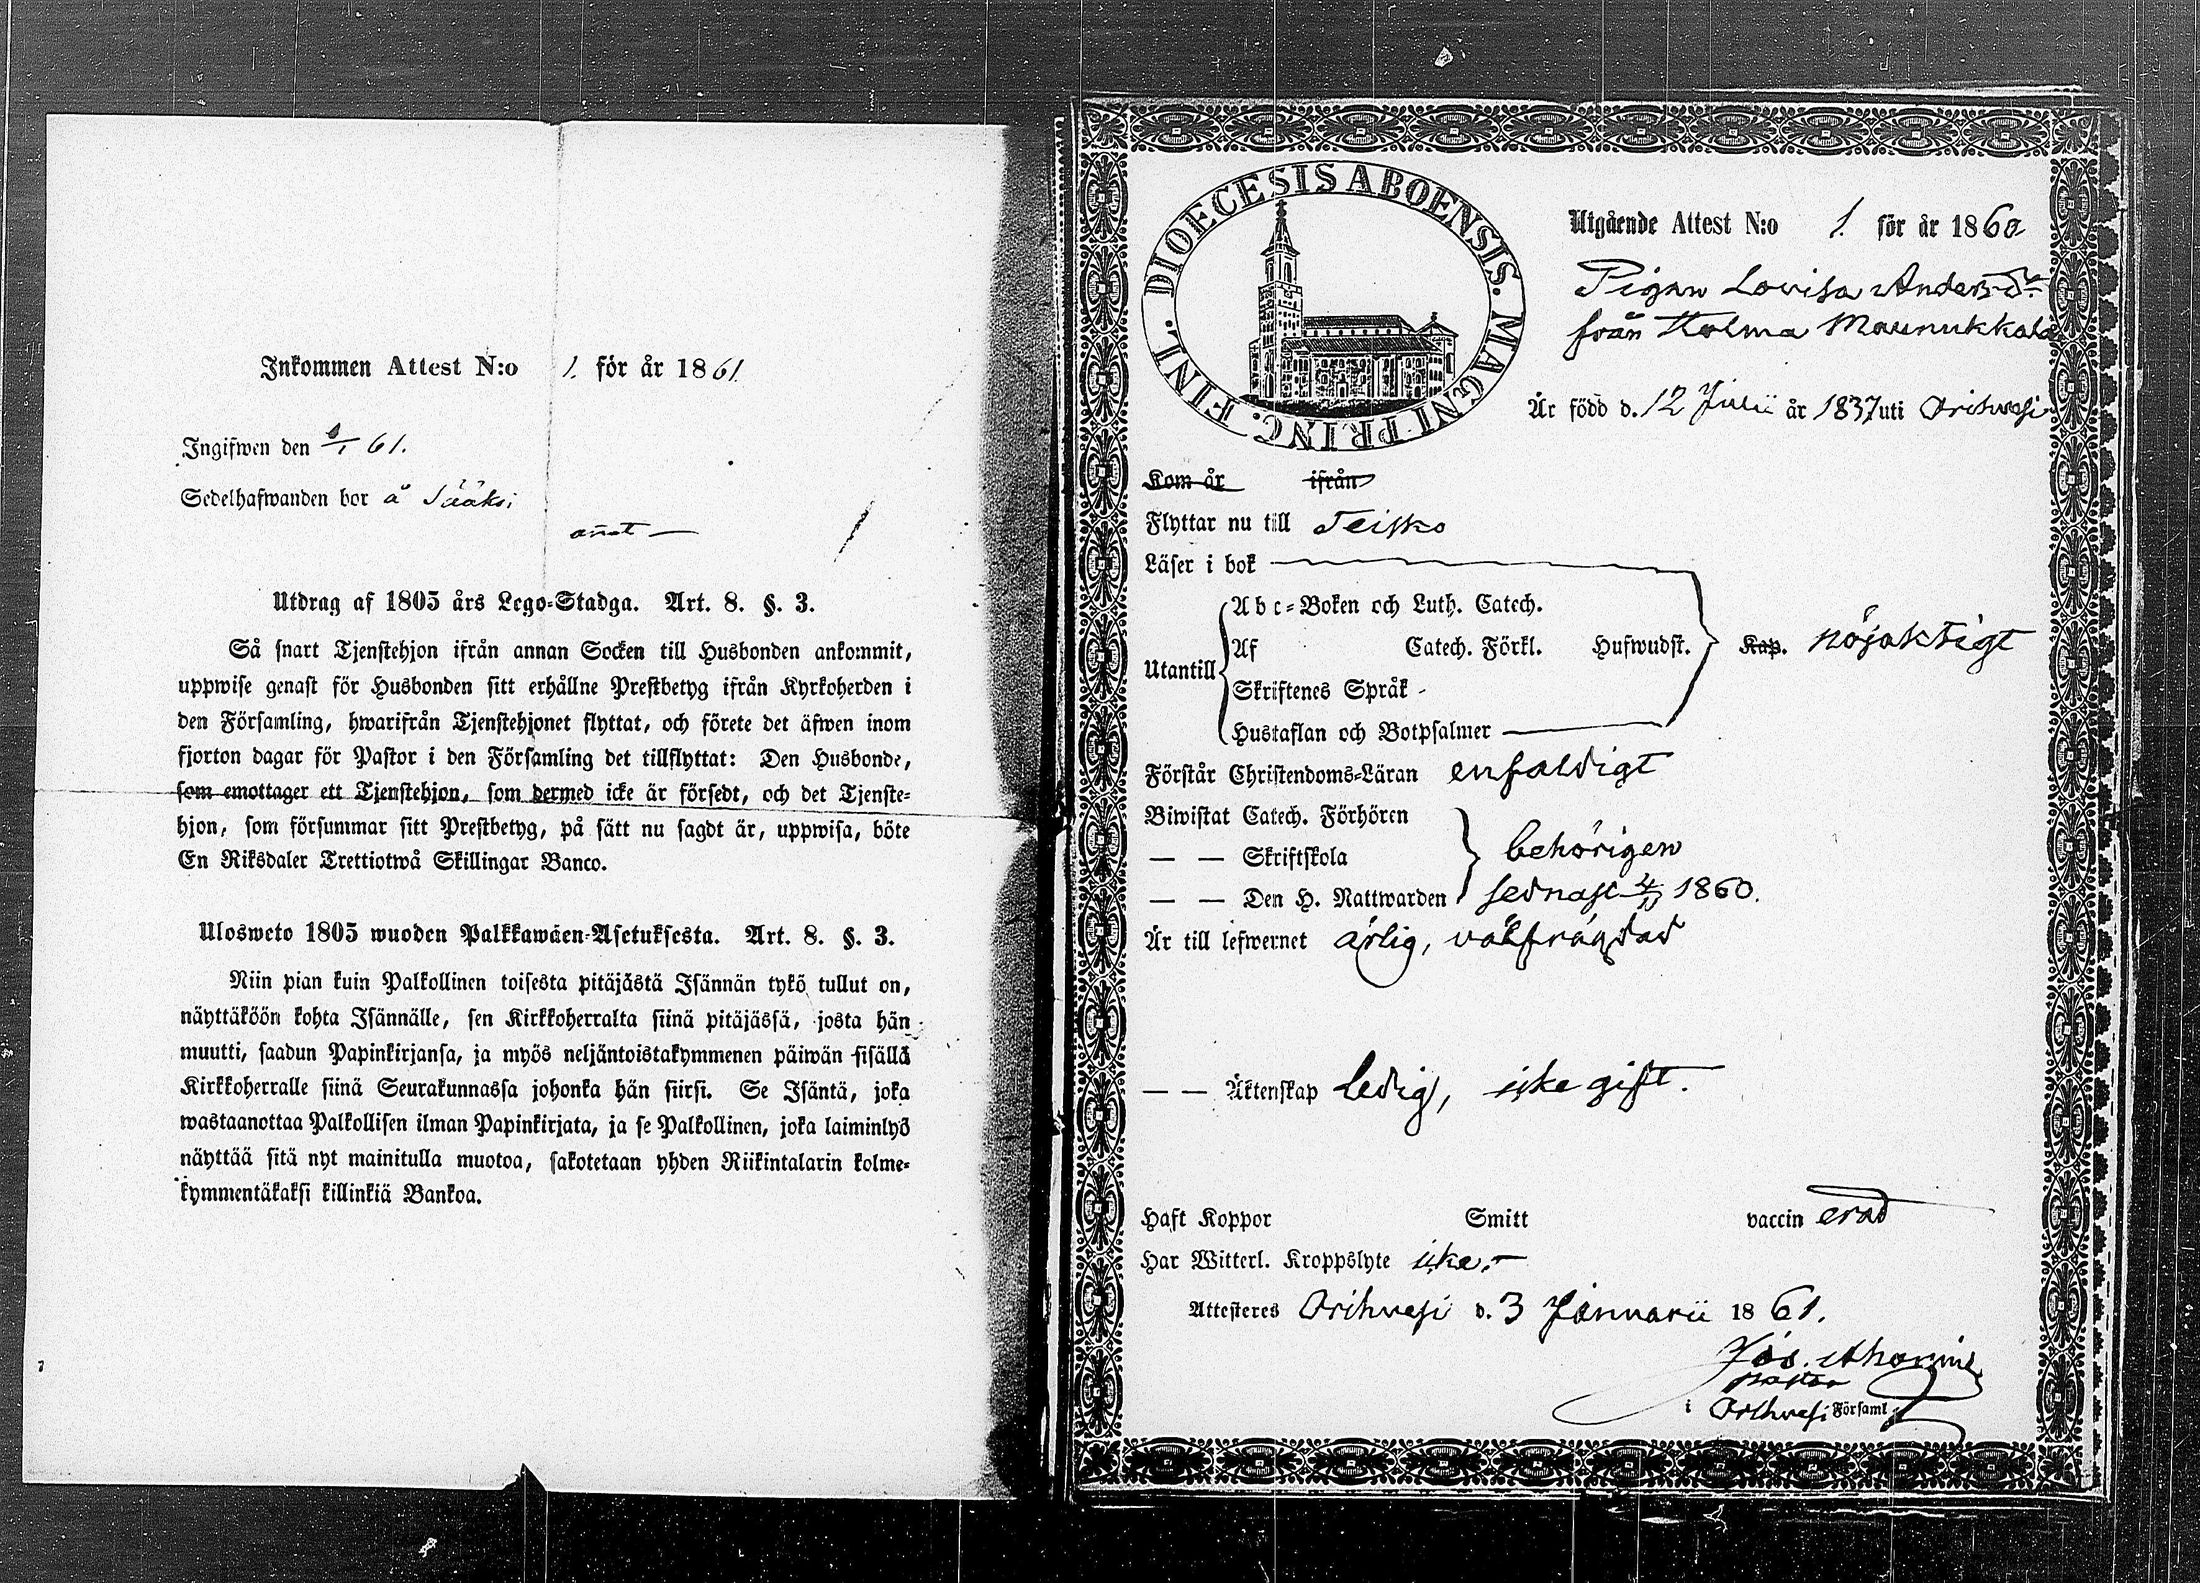 Inkommen Attest N:o 1. för år 1861.
Ingifwen den 6/1 61.
Sedelhafwanden bor å Sääksi
Utdrag af 1805 års Lego-Stadga. Art. 8. §. 3.
Så snart Tjenstehjon ifrån annan Socken till Husbonden ankommit,
uppwise genast för Husbonden sitt erhållne Prestbetyg ifrån Kyrkoherden i
den Församling, hwarifrån Tjenstehjonet flyttat, och förete det äfwen inom
fjorton dagar för Pastor i den Församling det tillflyttat: Den Husbonde,
som emottager ett Tjenstehjon, som dermed icke är försedt, och det Tjenste-
hjon, som försummar sitt Prestbetyg, på sätt nu sagdt är, uppwisa, böte
En Riksdaler Trettiotwå Skillingar Banco.
Ulosweto 1805 wuoden Palkkawäen-Asetuksesta. Art. 8. §. 3.
Niin pian kuin Palkollinen toisesta pitäjästä Isännän tykö tullut on,
näyttäköön kohta Isännälle, sen Kirkkoherralta siinä pitäjässä, josta hän
muutti, saadun Papinkirjansa, ja myös neljäntoistakymmenen päiwän sisällä
Kirkkoherralle siinä Seurakunnassa johonka hän siirsi. Se Isäntä, joka
wastaanottaa Palkollisen ilman Papinkirjata, ja se Palkollinen, joka laiminlyö
näyttää sitä nyt mainitulla muotoa, sakotetaan yhden Riikintalarin kolme-
kymmentäkaksi killinkiä Bankoa.
DIOECESIS ABOENSIS. MAGNI PRINC. FINL.
Utgående Attest N:o 1. för år 1860
Pigan Lovisa Andersdr
från Kolma Maunukkala
Är född d. 12 Julii år 1837 uti Orihvesi
Kom år ifrån
Flyttar nu till Teisko
Läser i bok
Utantill
Abc-Boken och Luth. Catech.
Af Catech. Förkl. Hufwudst. Kap. nöjaktigt
Skriftenes Språk
Hustaflan och Botpsalmer
Förstår Christendoms-Läran enfaldigt
Biwistat Catech. Förhören
— — Skriftskola behörigen
— — Den H. Nattwarden sednast 4/11 1860.
Är till lefwernet ärlig, välfrägdad
— — Äktenskap ledig, icke gift.
Haft Koppor Smitt vaccinerad
Har Witterl. Kroppslyte icke.
Attesteres Orihvesi d. 3 Januarii 1861.
Pastor
i Orihvesi Församl.